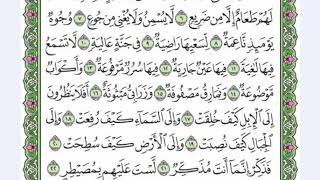 لَهُمْ طَعَامٌ إِلَّا مِن ضَرِيعٍ ۝٦ لَّا يُسْمِنُ وَلَا يُغْنِي مِن جُوعٍ ۝٧ وُجُوهٌ
يَوْمَئِذٍ نَّاعِمَةٌ ۝٨ لِّسَعْيِهَا رَاضِيَةٌ ۝٩ فِي جَنَّةٍ عَالِيَةٍ ۝١٠ لَّا تَسْمَعُ
فِيهَا لَاغِيَةً ۝١١ فِيهَا عَيْنٌ جَارِيَةٌ ۝١٢ فِيهَا سُرُرٌ مَّرْفُوعَةٌ ۝١٣ وَأَكْوَابٌ
مَّوْضُوعَةٌ ۝١٤ وَنَمَارِقُ مَصْفُوفَةٌ ۝١٥ وَزَرَابِيُّ مَبْثُوثَةٌ ۝١٦ أَفَلَا يَنظُرُونَ
إِلَى الْإِبِلِ كَيْفَ خُلِقَتْ ۝١٧ وَإِلَى السَّمَاءِ كَيْفَ رُفِعَتْ ۝١٨ وَإِلَى
الْجِبَالِ كَيْفَ نُصِبَتْ ۝١٩ وَإِلَى الْأَرْضِ كَيْفَ سُطِحَتْ ۝٢٠
فَذَكِّرْ إِنَّمَا أَنتَ مُذَكِّرٌ ۝٢١ لَّسْتَ عَلَيْهِم بِمُصَيْطِرٍ ۝٢٢